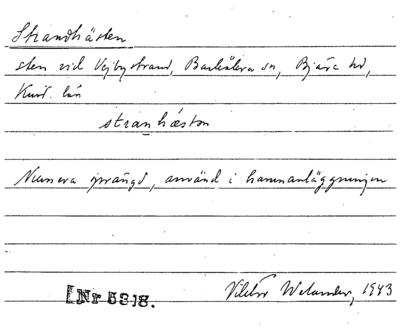 Strandhästen
sten vid Vejbystrand, Barkåkra sn, Bjäre hd,
Krist. län
stranhæstən
Numera sprängd, använd i hamnanläggningen
[Nr 5818.
Viktor Welander, 1943